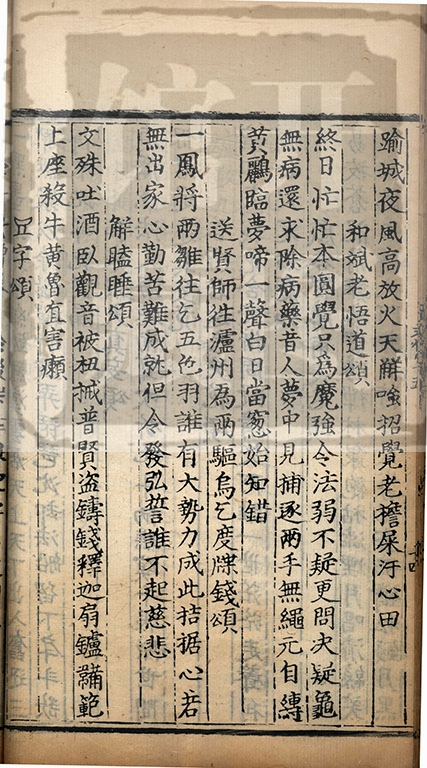 踰城夜風高放火天鮮喰招覺老擔屎汙心田
和斌老悟道頌
終日忙忙本圓覺只爲魔強令法弱不疑更問决疑龜
無病還求除病藥昔人夢中見捕逐兩手無繩元自縛
黄鸝臨夢啼一聲白日當窻始知錯
送賢師往瀘州爲兩驅烏乞度牒錢頌
一鳳將兩雛往乞五色羽誰有大勢力成此拮据心若
無出家心勤苦難成就但令發弘誓誰不起慈悲
解瞌睡頌
文殊吐酒臥觀音被杻械普賢盜鑄錢釋迦扇鑪鞴範
上座殺牛黄魯直害癩
字頌